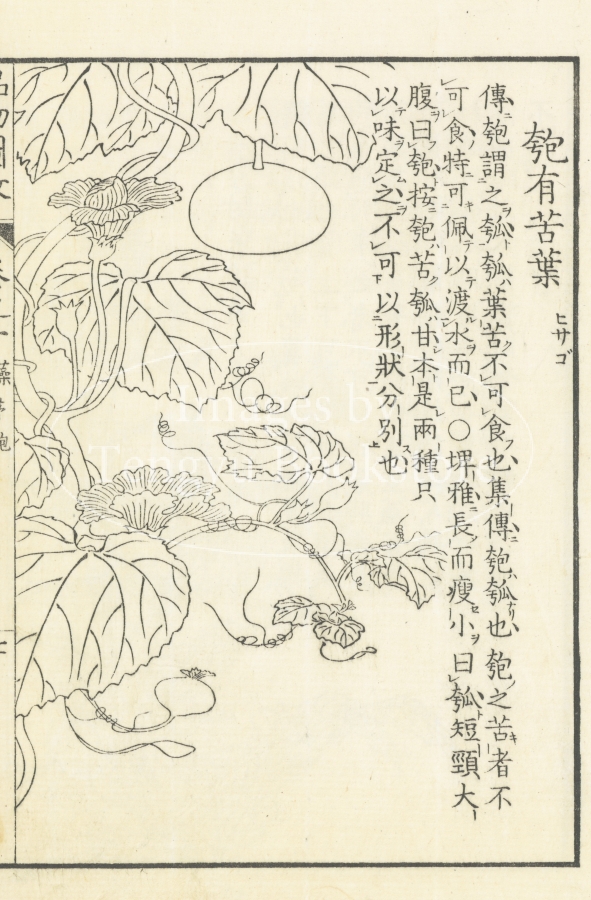 匏有苦葉
ヒサゴ
傳匏謂之瓠瓠葉苦不可食也集傳匏瓠也匏之苦者不
可食特可佩以渡水而已○埤雅長而瘦小曰瓠短頸大
腹曰匏按匏苦瓠甘本是兩種只
以味定之不可以形狀分別也
品物圖攷
Images by
Tenova Bookstore